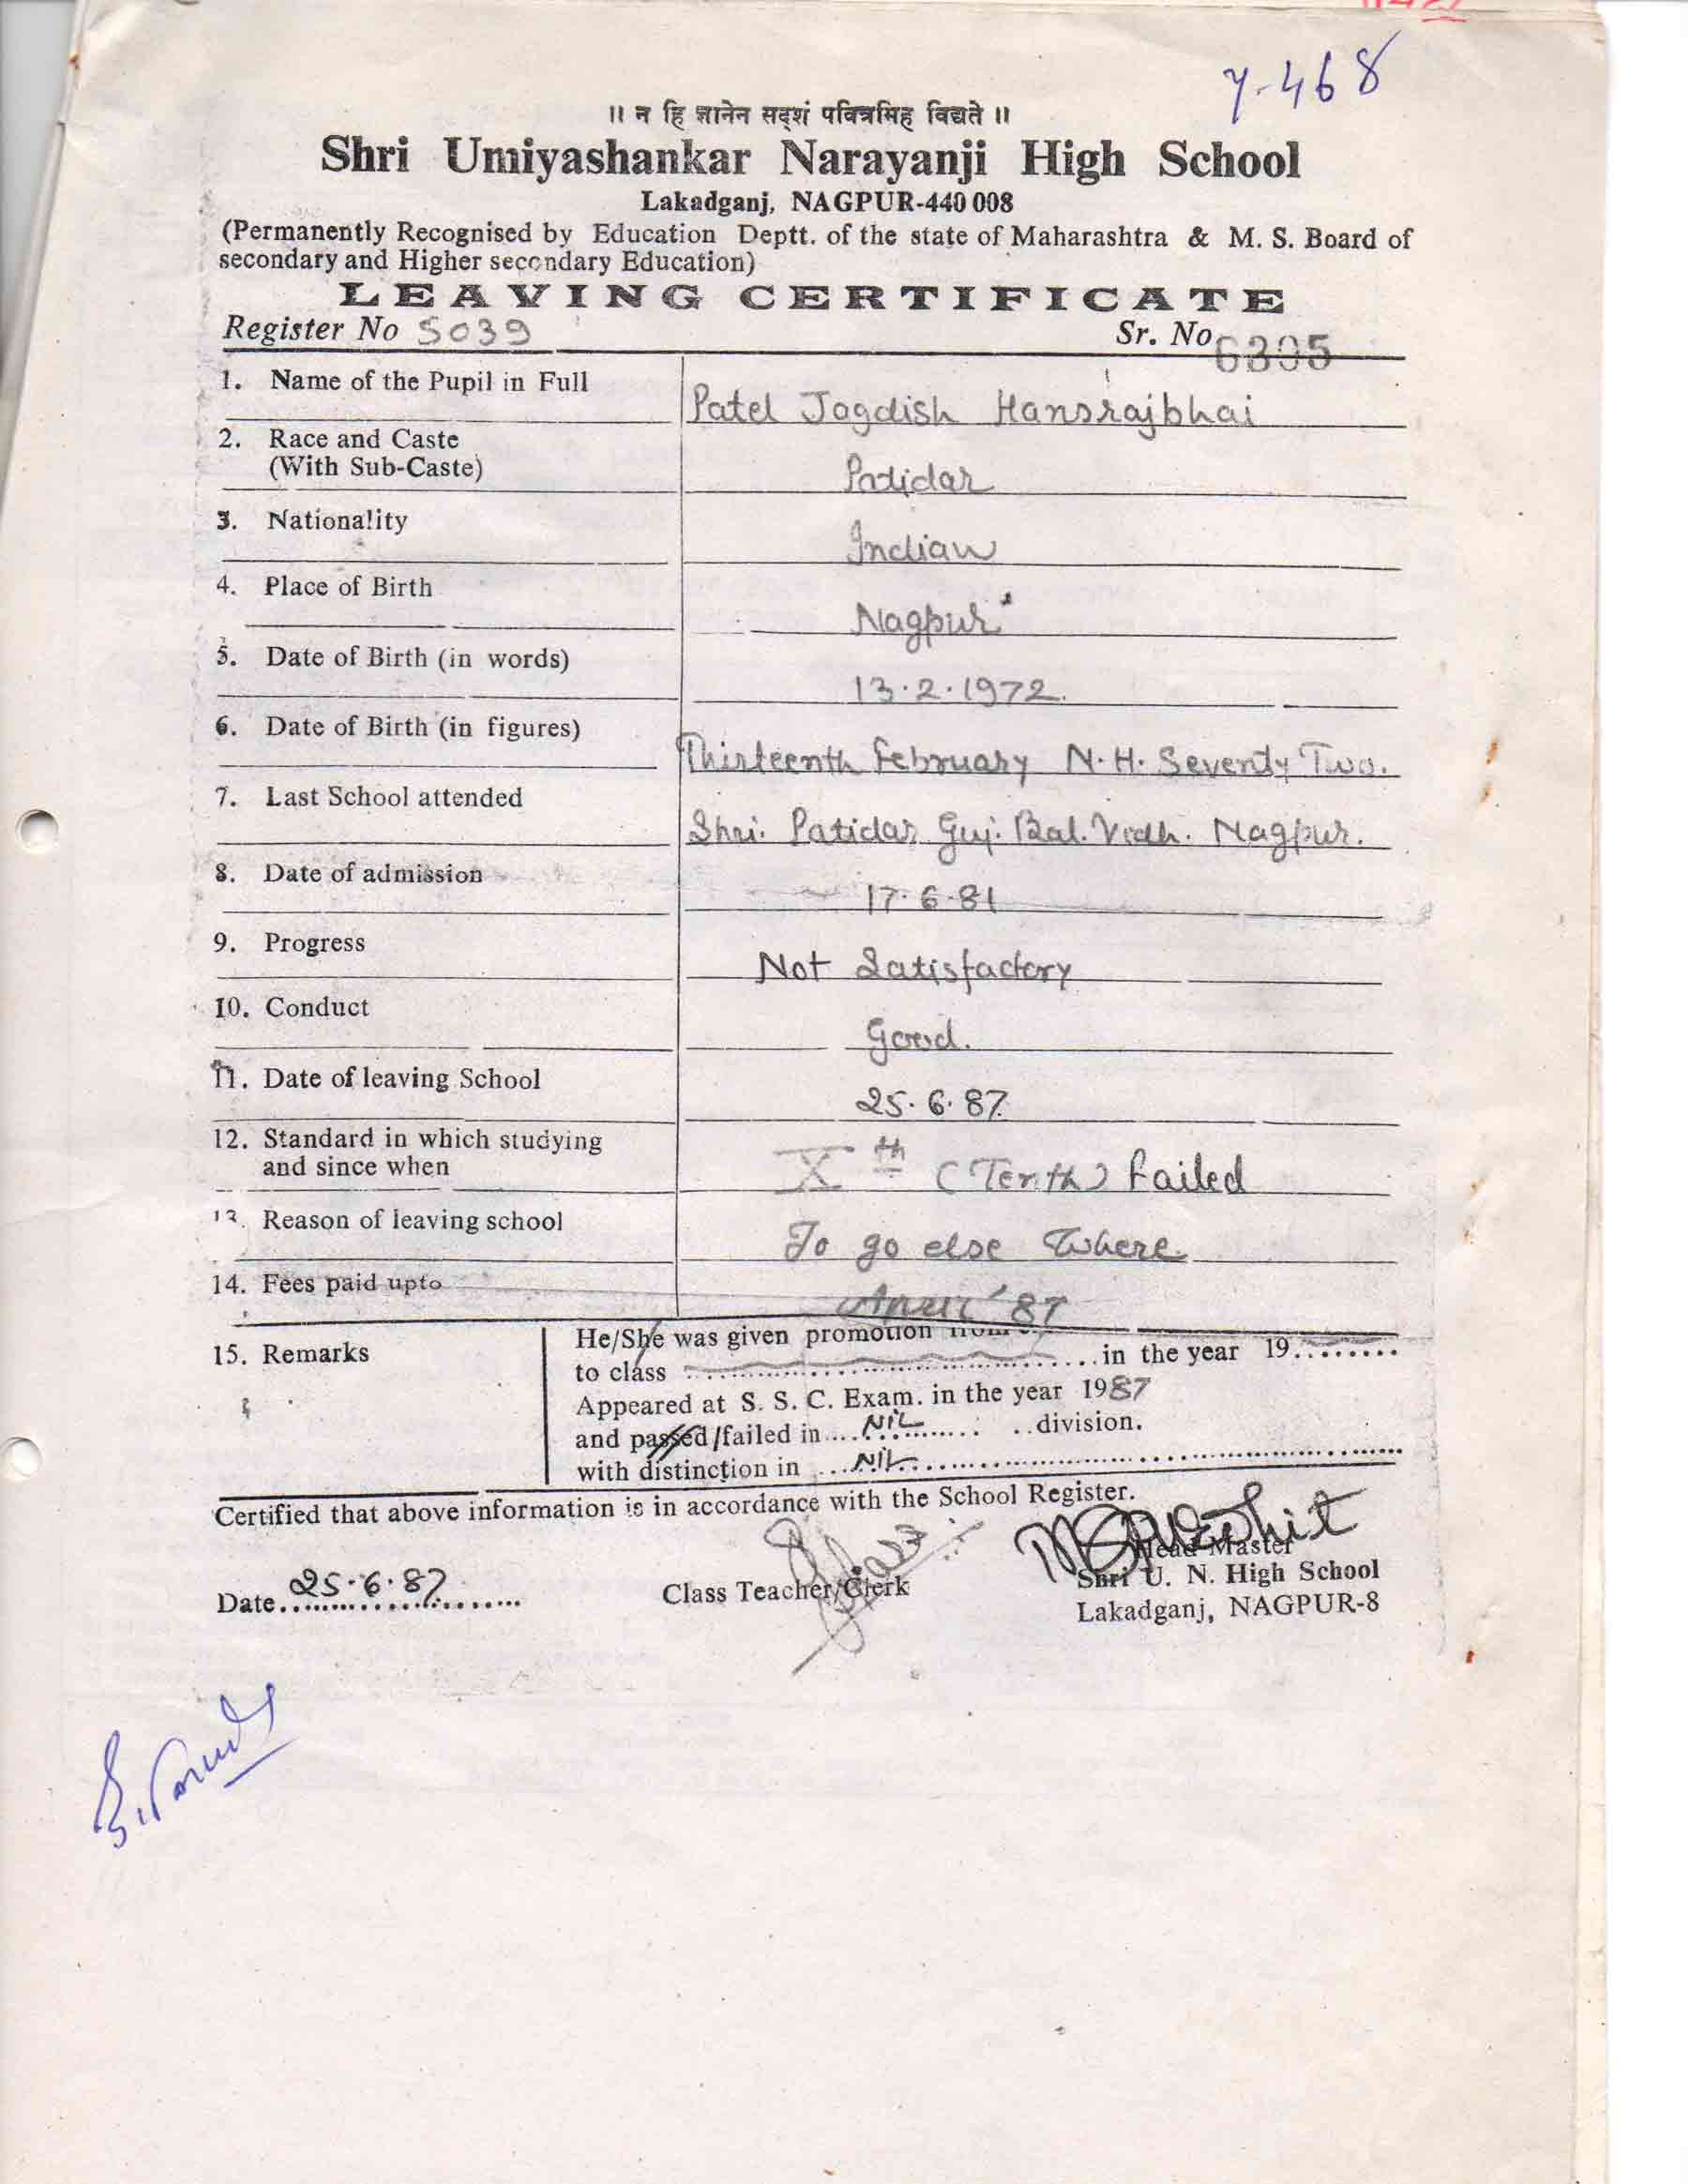 7-468
॥ न हि ज्ञानेन सदृशं पवित्रमिह विद्यते ॥
Shri Umiyashankar Narayanji High School
Lakadganj, NAGPUR-440 008
(Permanently Recognised by Education Deptt. of the state of Maharashtra & M. S. Board of
secondary and Higher secondary Education)
LEAVING CERTIFICATE
Register No 5039 Sr. No. 6305
1. Name of the Pupil in Full Patel Jagdish Hansrajbhai
2. Race and Caste
(With Sub-Caste) Patidar
3. Nationality Indian
4. Place of Birth Nagpur
5. Date of Birth (in words) 13.2.1972.
6. Date of Birth (in figures) Thirteenth February N.H. Seventy Two.
7. Last School attended Shri. Patidar Guj. Bal. Vidh. Nagpur.
8. Date of admission 17.6.81
9. Progress Not Satisfactory
10. Conduct Good.
11. Date of leaving School 25.6.87
12. Standard in which studying
and since when Xth (Tenth) Failed
13. Reason of leaving school To go else where
14. Fees paid upto April '87
15. Remarks He/She was given promotion from
to class in the year 19
Appeared at S. S. C. Exam. in the year 1987
and passed/failed in NIL division.
with distinction in NIL
Certified that above information is in accordance with the School Register.
Date 25.6.87 Class Teacher/Clerk Head Master
Shri U. N. High School
Lakadganj, NAGPUR-8